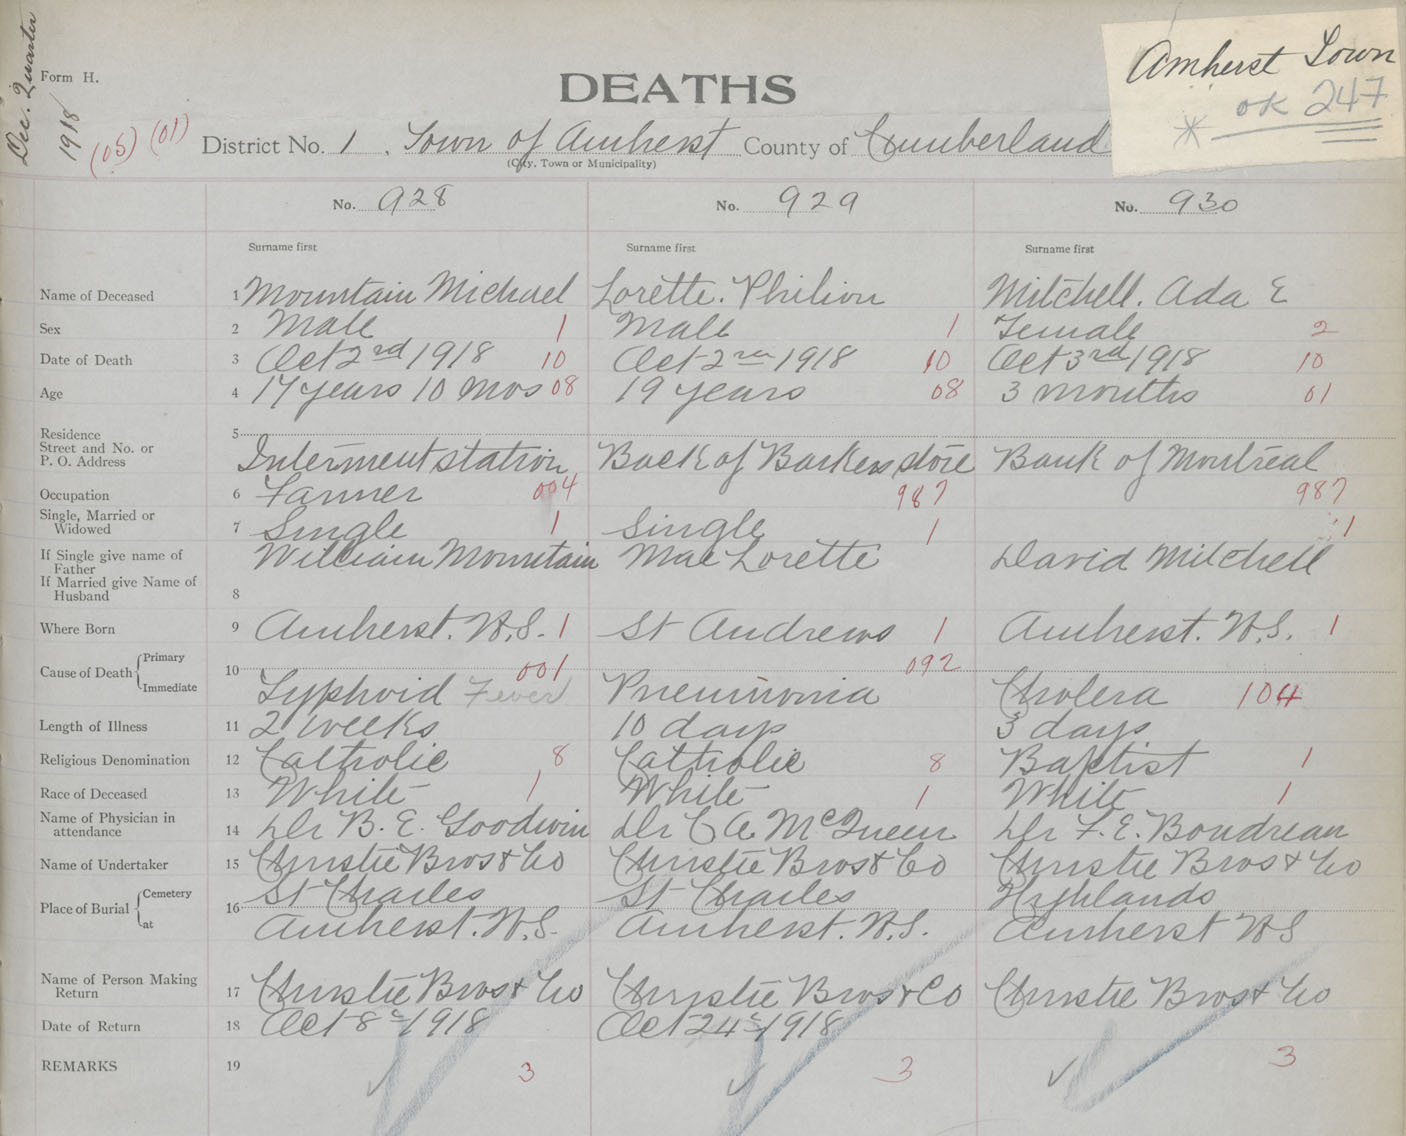 Dec. Quarter
1918
(05) (01)
Form H.
DEATHS
Amherst Town
ok 247
District No. 1. Town of Amherst County of Cumberland
(City, Town or Municipality)
No. 928 No. 929 No. 930
Surname first Surname first Surname first
Name of Deceased 1 Mountain Michael Lorette. Philion Mitchell. Ada E
Sex 2 Male 1 Male 1 Female 2
Date of Death 3 Oct 2nd 1918 10 Oct 2nd 1918 10 Oct 3rd 1918 10
Age 4 17 years 10 mos 08 19 years 08 3 months 01
Residence 5
Street and No. or
P. O. Address Interment station Back of Barkers store Bank of Montreal
Occupation 6 Farmer 004 987 987
Single, Married or
Widowed 7 Single 1 Single 1 1
If Single give name of
Father William Mountain Mac Lorette David Mitchell
If Married give Name of
Husband 8
Where Born 9 Amherst. N.S. 1 St Andrews 1 Amherst. N.S. 1
Cause of Death Primary 10 001 092
Immediate Typhoid Fever Pneumonia Cholera 104
Length of Illness 11 2 weeks 10 days 3 days
Religious Denomination 12 Catholic 8 Catholic 8 Baptist 1
Race of Deceased 13 White 1 White 1 White 1
Name of Physician in
attendance 14 Dr B. E. Goodwin Dr C A. McQueen Dr F. E. Boudreau
Name of Undertaker 15 Christie Bros & Co Christie Bros & Co Christie Bros & Co
Place of Burial Cemetery 16 St Charles St Charles Highlands
at Amherst. N.S. Amherst. N.S. Amherst NS
Name of Person Making
Return 17 Christie Bros & Co Christie Bros & Co Christie Bros & Co
Date of Return 18 Oct 8 1918 Oct 24 1918
REMARKS 19 3 3 3